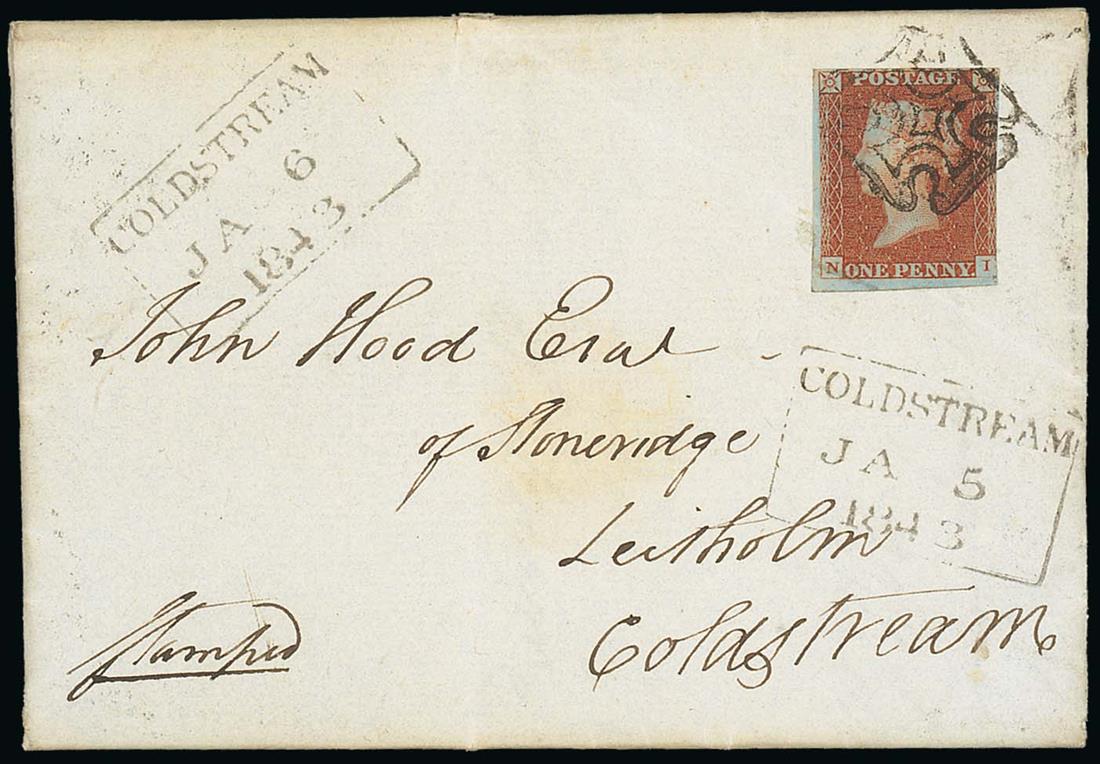 COLDSTREAM
JA 6
1843
POSTAGE
N ONE PENNY I
John Hood Esqr
of Stoneridge
Leitholm
Coldstream
COLDSTREAM
JA 5
1843
Stamped